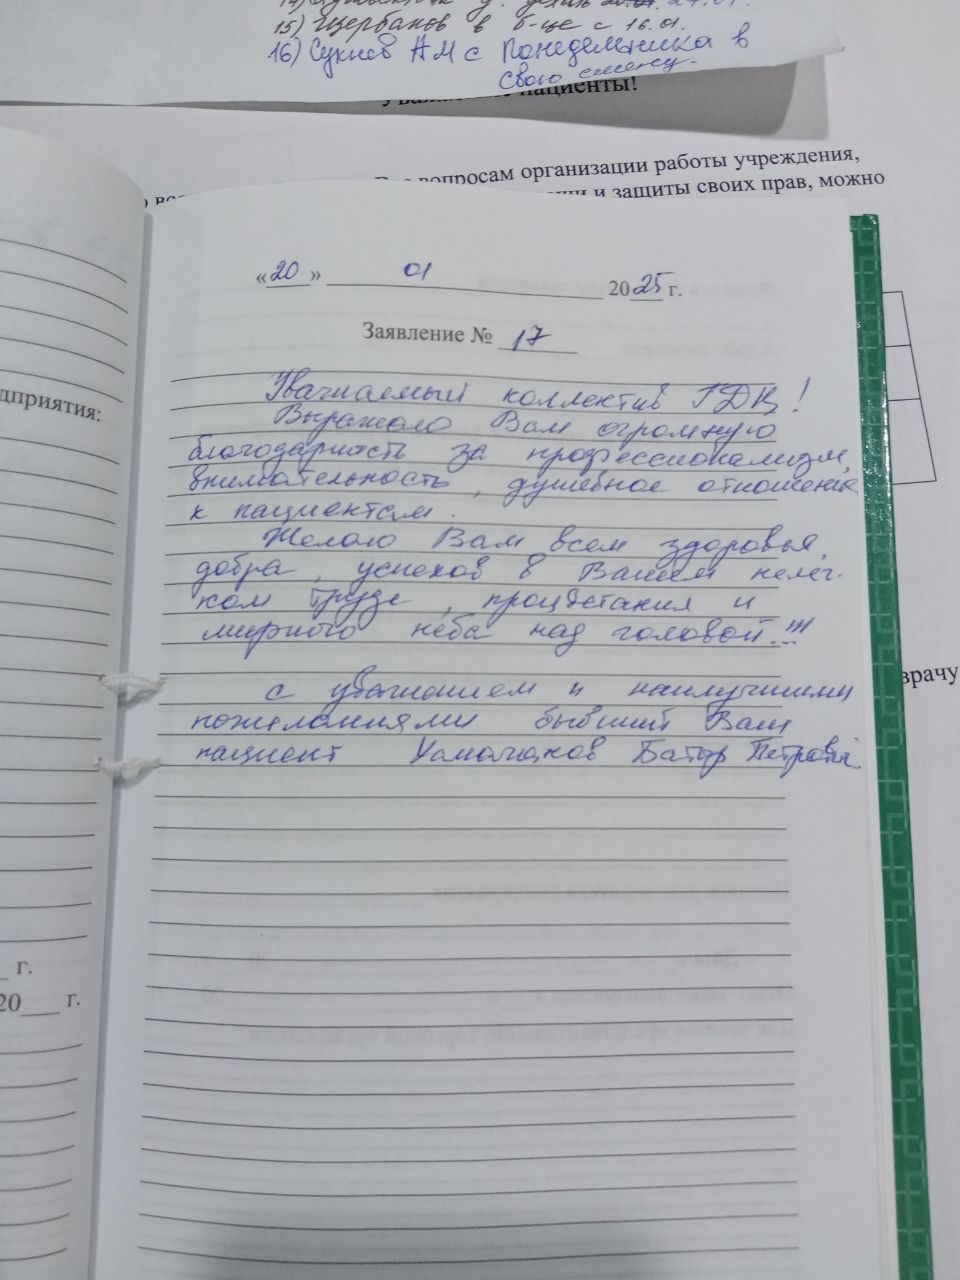 15) Щербанов в б-це с 16.01.
16) Сукиев АМ с понедельника в
свою смену.
пациенты!
вопросам организации работы учреждения,
и защиты своих прав, можно
«20» 01 2025 г.
Заявление № 17
Уважаемый коллектив ГДЦ!
Выражаю Вам огромную
благодарность за профессионализм,
внимательность, душевное отношение
к пациентам.
Желаю Вам всем здоровья,
добра, успехов в Вашем нелег-
ком труде, процветания и
мирного неба над головой...!!!
С уважением и наилучшими
пожеланиями бывший Ваш
пациент Батор Петрович
дприятия:
врачу
г.
20___ г.